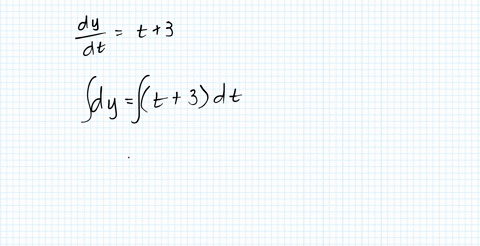 dy/dt = t + 3
∫dy = ∫(t + 3) dt